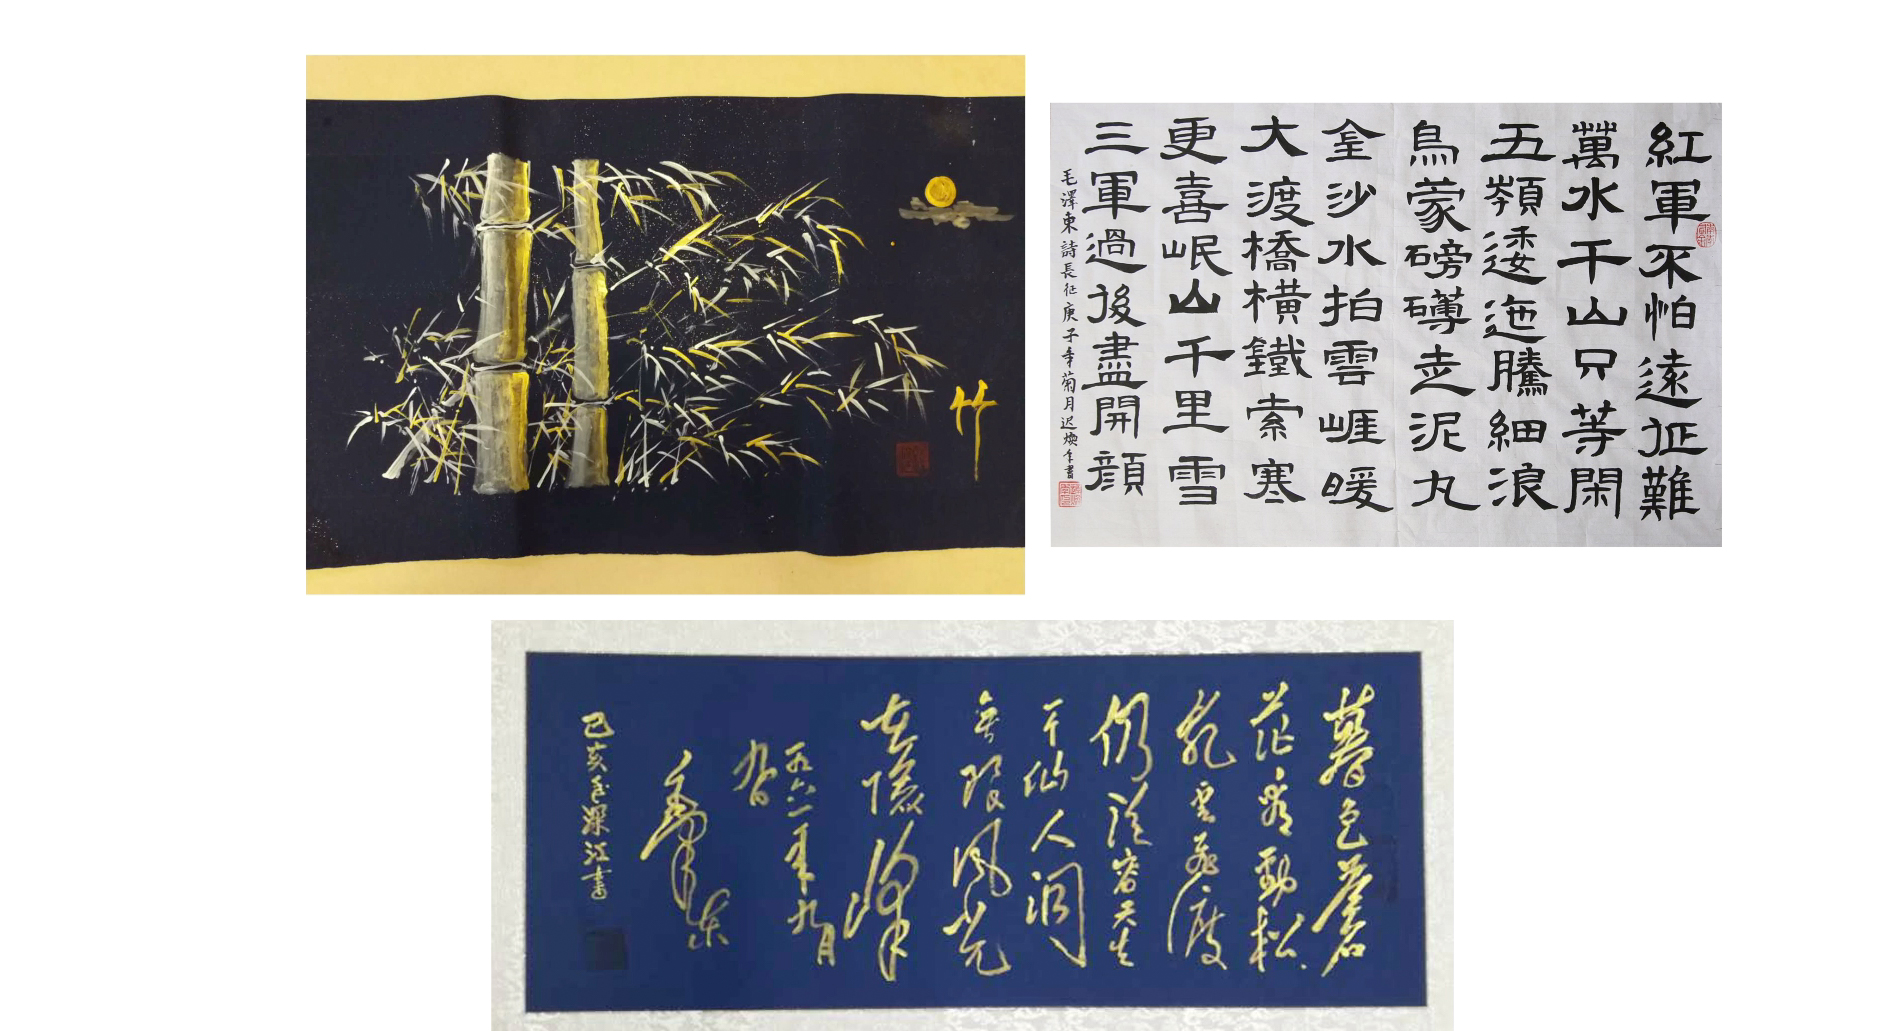 竹
紅軍不怕遠征難
萬水千山只等閑
五嶺逶迤騰細浪
烏蒙磅礴走泥丸
金沙水拍雲崖暖
大渡橋橫鐵索寒
更喜岷山千里雪
三軍過後盡開顏
毛澤東詩長征庚子年菊月迟煥年書
暮色蒼
茫看勁松
亂雲飛渡
仍從容天生
一个仙人洞
無限風光
在險峰
一九六一年九月
九日
毛澤東
己亥年深江書